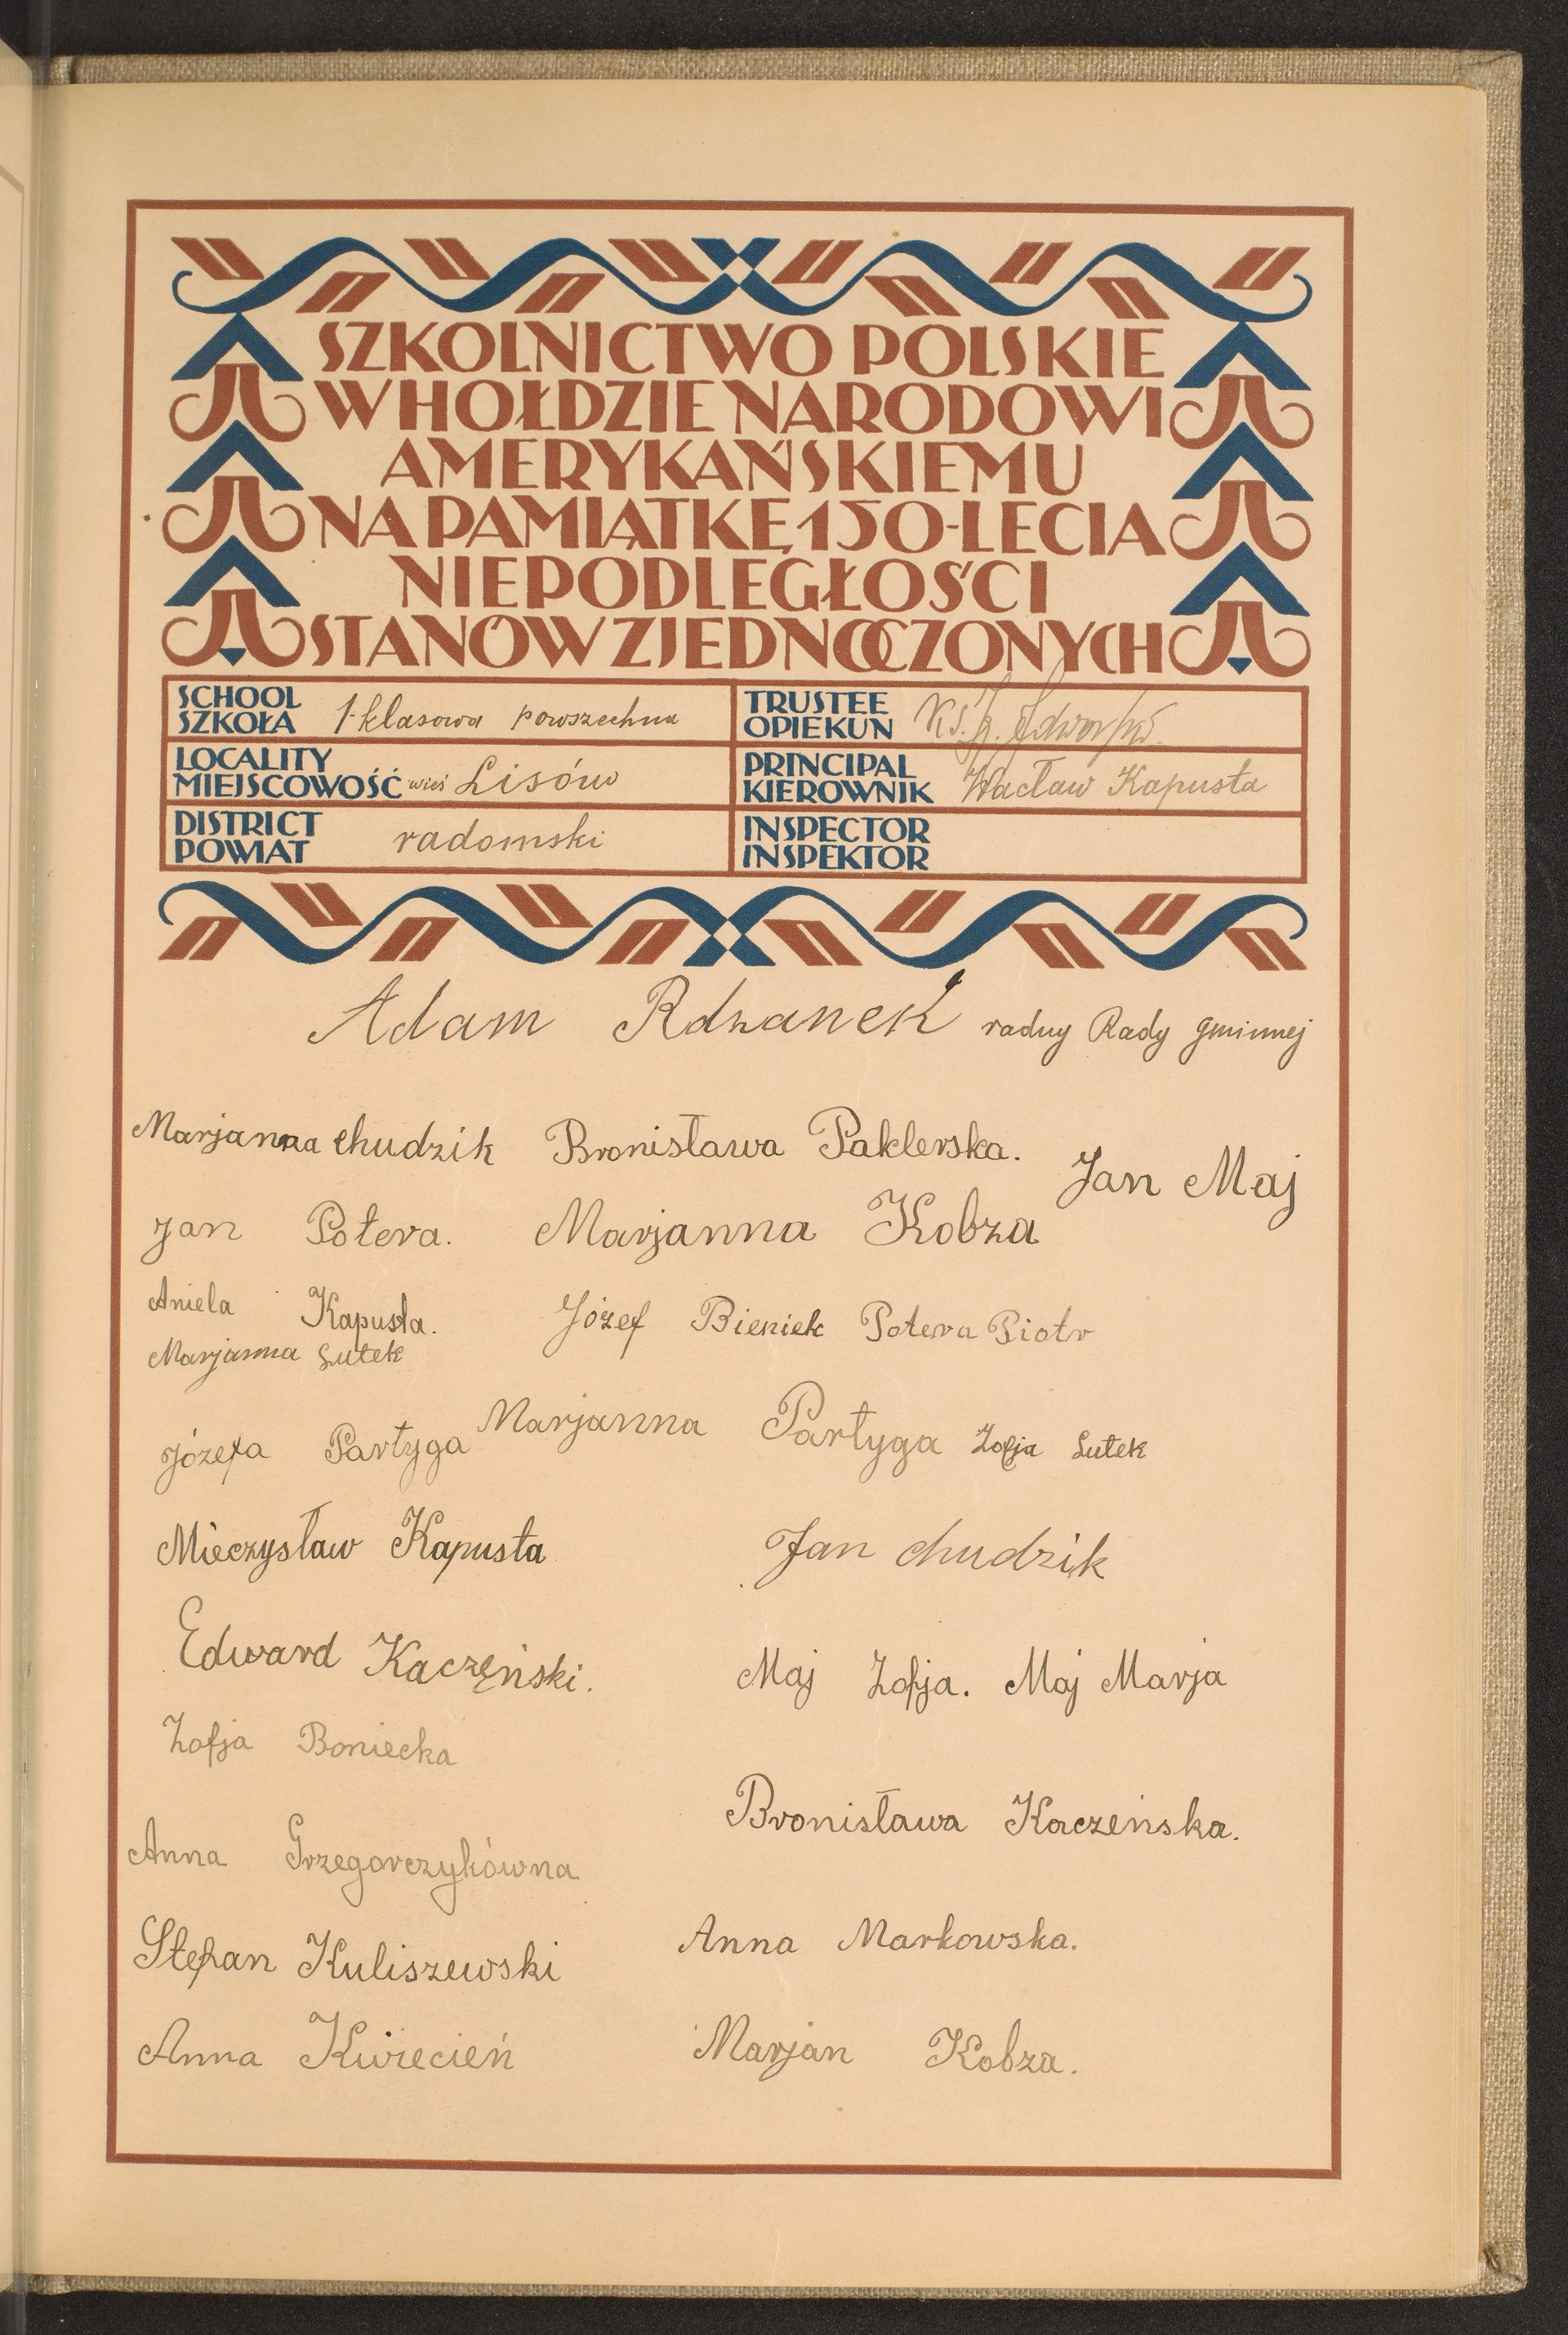 SZKOLNICTWO POLSKIE
W HOŁDZIE NARODOWI
AMERYKAŃSKIEMU
NA PAMIĄTKĘ 150-LECIA
NIEPODLEGŁOŚCI
STANÓW ZJEDNOCZONYCH
SCHOOL
SZKOŁA 1-klasowa powszechna
TRUSTEE
OPIEKUN Ks. J.
LOCALITY
MIEJSCOWOŚĆ wieś Lisów
PRINCIPAL
KIEROWNIK Wacław Kapusta
DISTRICT
POWIAT radomski
INSPECTOR
INSPEKTOR
Adam Rdzanek radny Rady gminnej
Marjanna Chudzik Bronisława Paklerska. Jan Maj
Jan Potera. Marjanna Kobza
Aniela Kapusta. Józef Bieniek Potera Piotr
Marjanna Sutek
Józefa Partyga Marjanna Partyga Zofja Sutek
Mieczysław Kapusta Jan Chudzik
Edward Kaczeński. Maj Zofja. Maj Marja
Zofja Boniecka
Bronisława Kaczeńska.
Anna Grzegorczykówna
Stefan Kuliszewski Anna Markowska.
Anna Kwiecień Marjan Kobza.